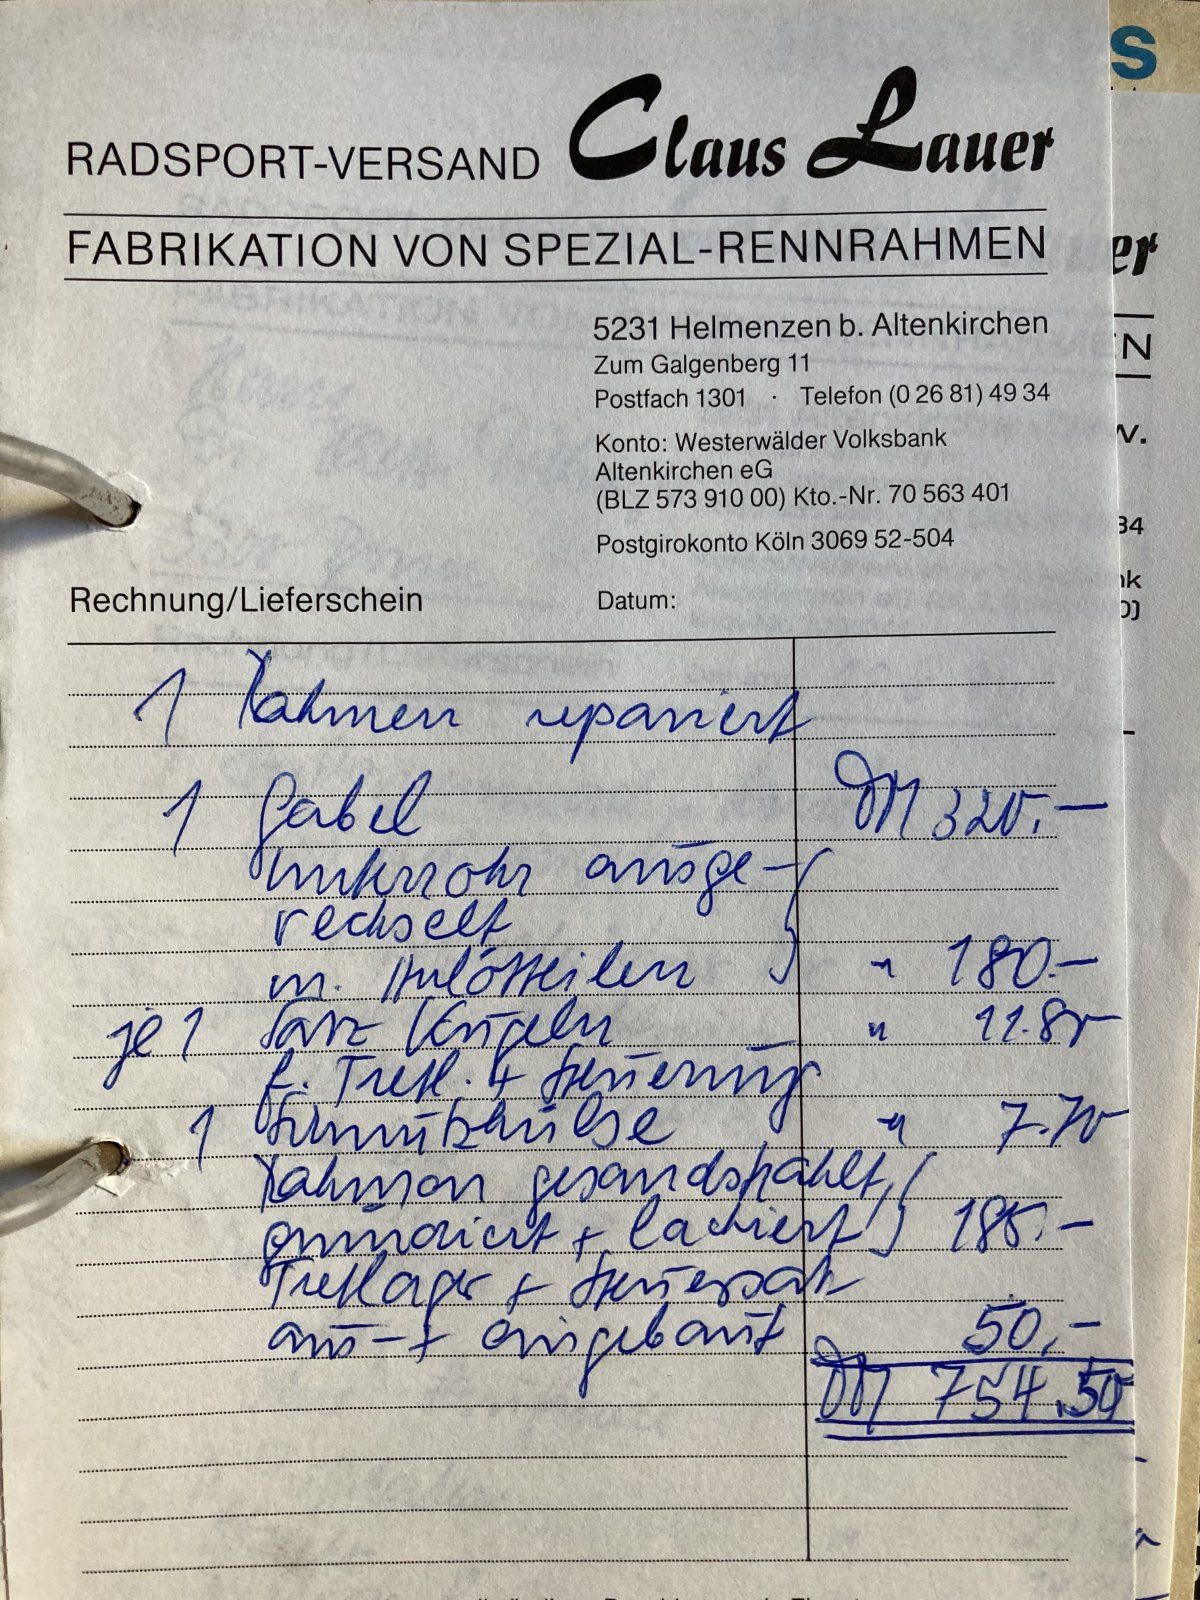 RADSPORT-VERSAND Claus Lauer
FABRIKATION VON SPEZIAL-RENNRAHMEN
5231 Helmenzen b. Altenkirchen
Zum Galgenberg 11
Postfach 1301 · Telefon (0 26 81) 49 34
Konto: Westerwälder Volksbank
Altenkirchen eG
(BLZ 573 910 00) Kto.-Nr. 70 563 401
Postgirokonto Köln 3069 52-504
Rechnung/Lieferschein Datum:
1 Rahmen repariert
1 Gabel DM 320.-
Unterrohr ausge-
wechselt
m. Anlötteilen " 180.-
je 1 Satz Kugeln " 11.80
f. Tretl. + Steuerung
1 Schmutzhülse " 7.70
Rahmen gesandstrahlt,
grundiert + lackiert 185.-
Tretlager + Steuersatz
aus- + eingebaut 50,-
DM 754.50